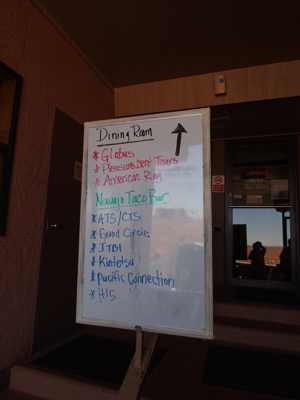 Dining Room
* Globus
* Pleasure Dent Tours
* American Ring
Navajo Taco Bar
* ATS/CTS
* Grand Circus
* JTBI
* Kintetsu
* Pacific Connection
* HIS